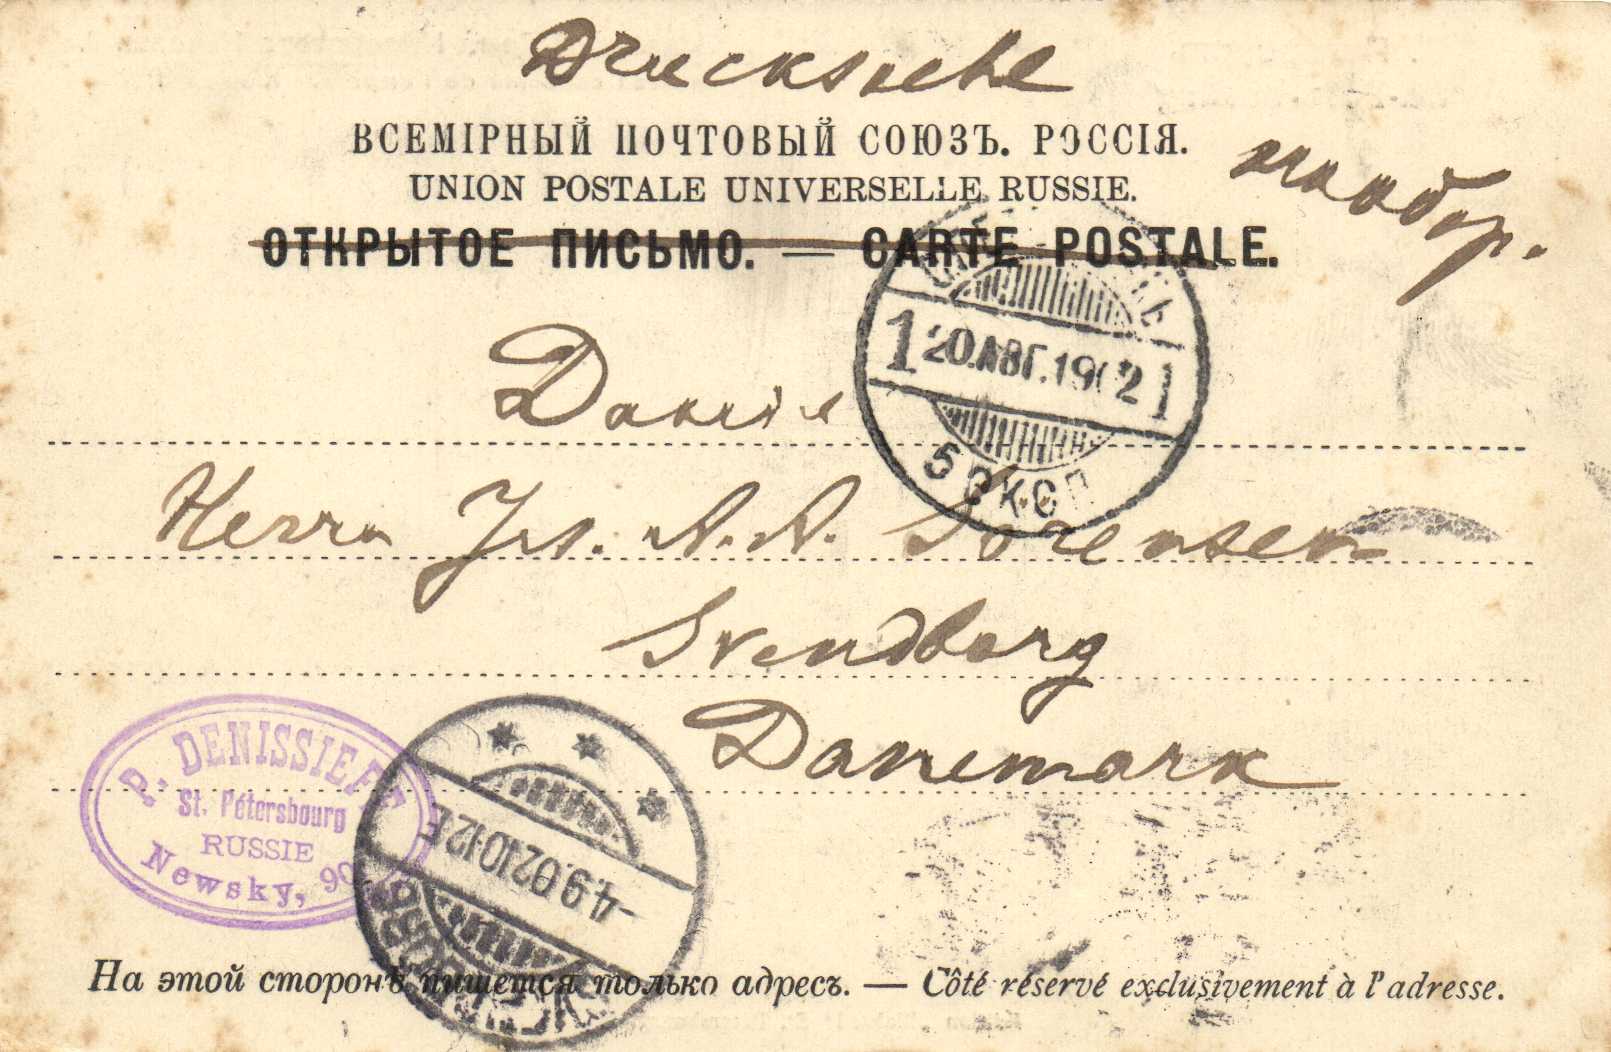 Drucksache
ВСЕМІРНЫЙ ПОЧТОВЫЙ СОЮЗЪ. РОССІЯ.
UNION POSTALE UNIVERSELLE RUSSIE.
ОТКРЫТОЕ ПИСЬМО. — CARTE POSTALE.
1 20.АВГ.1902 1
5 ЭКСП
Herrn A. N. Sorensen
Svendborg
Danemark
P. DENISSIEFF
St. Pétersbourg
RUSSIE
Newsky, 90
4.9.02.10-12 F
На этой сторонѣ пишется только адресъ. — Côté réservé exclusivement à l'adresse.